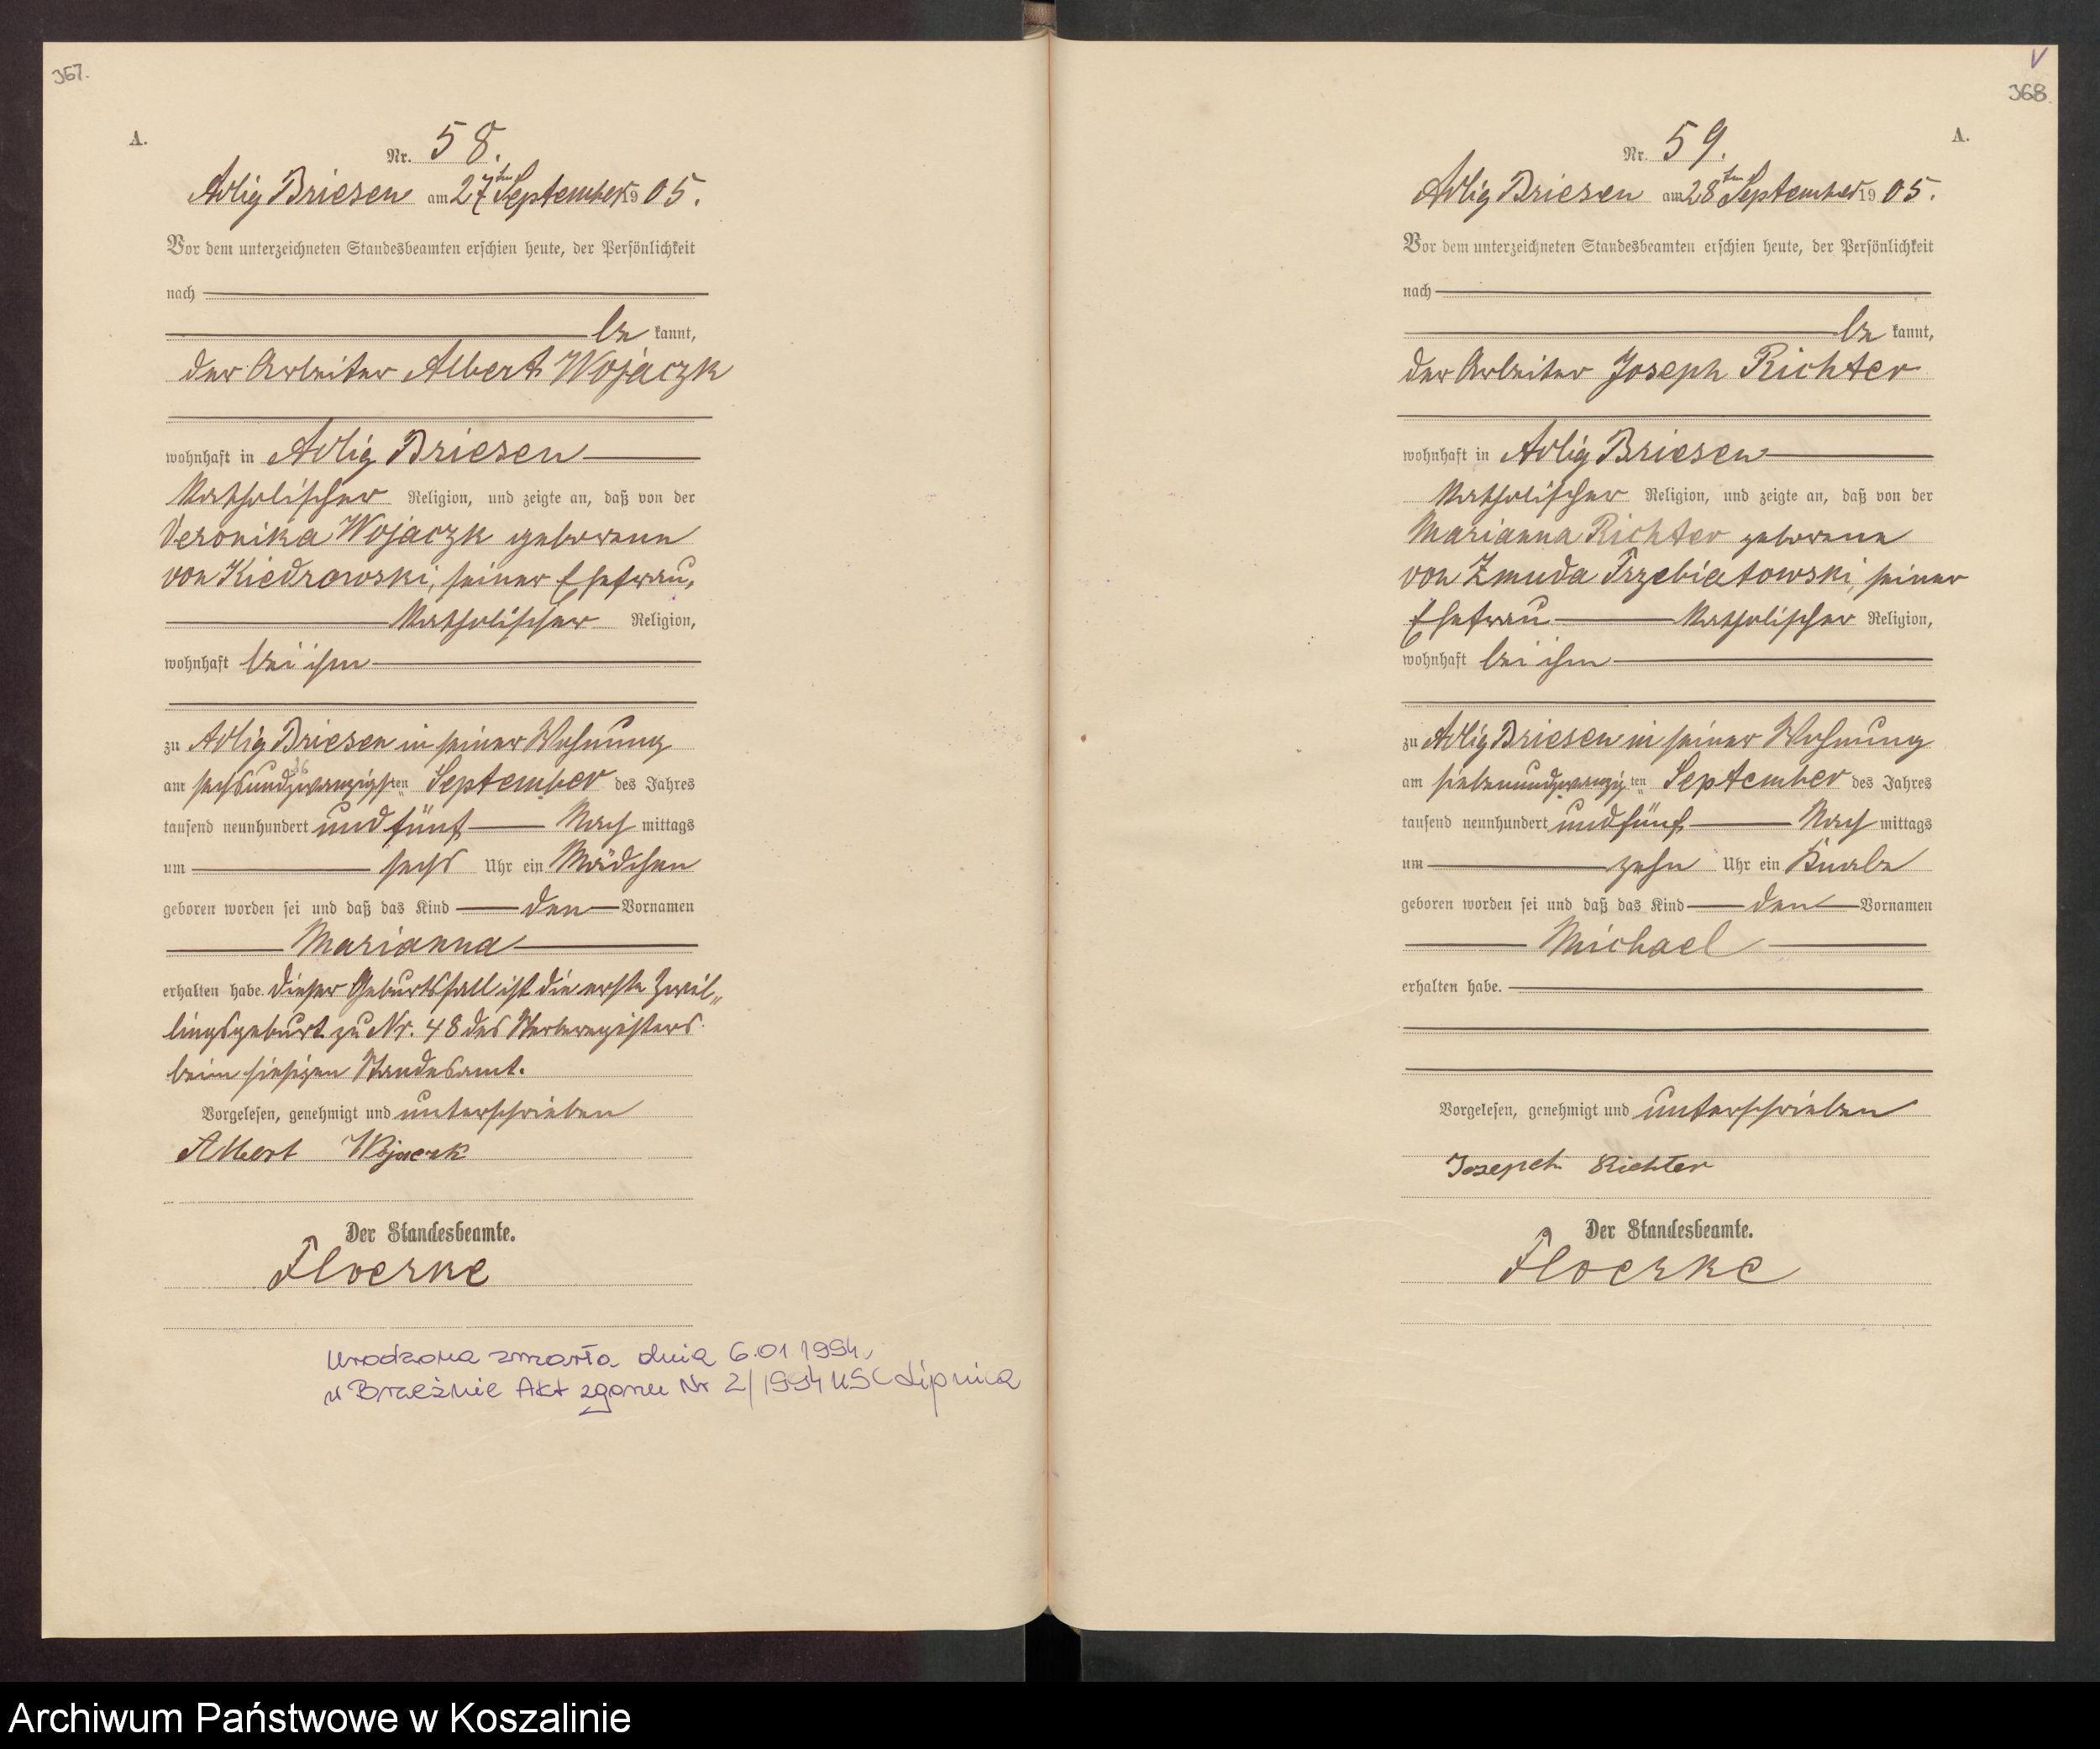 367.
A.
Nr. 58.
Adlig Briesen am 27ten September 1905.
Vor dem unterzeichneten Standesbeamten erschien heute, der Persönlichkeit
nach
be kannt,
der Arbeiter Albert Wojaczk
wohnhaft in Adlig Briesen
katholischer Religion, und zeigte an, daß von der
Veronika Wojaczk geborene
von Kiedrowski, seiner Ehefrau,
katholischer Religion,
wohnhaft bei ihm
zu Adlig Briesen in seiner Wohnung
am sechsundzwanzigsten September des Jahres
26
tausend neunhundert und fünf Nach mittags
um sechs Uhr ein Mädchen
geboren worden sei und daß das Kind den Vornamen
Marianna
erhalten habe. Dieser Geburtsfall ist die erste Zwil„
lingsgeburt zu Nr. 48 des Sterberegisters
beim hiesigen Standesamt.
Vorgelesen, genehmigt und unterschrieben
Albert Wojaczk
Der Standesbeamte.
Floerke
Urodzona zmarła dnia 6.01 1994,
w Brzeźnie Akt zgonu Nr 2/1994 USC Lipnica
V
368.
A.
Nr. 59.
Adlig Briesen am 28ten September 1905.
Vor dem unterzeichneten Standesbeamten erschien heute, der Persönlichkeit
nach
be kannt,
der Arbeiter Joseph Richter
wohnhaft in Adlig Briesen
katholischer Religion, und zeigte an, daß von der
Marianna Richter geborene
von Zmuda Trzebiatowski, seiner
Ehefrau katholischer Religion,
wohnhaft bei ihm
zu Adlig Briesen in seiner Wohnung
am siebenundzwanzigten September des Jahres
tausend neunhundert und fünf Nach mittags
um zehn Uhr ein Knabe
geboren worden sei und daß das Kind den Vornamen
Michael
erhalten habe.
Vorgelesen, genehmigt und unterschrieben
Josepeh Richter
Der Standesbeamte.
Floerke
Archiwum Państwowe w Koszalinie